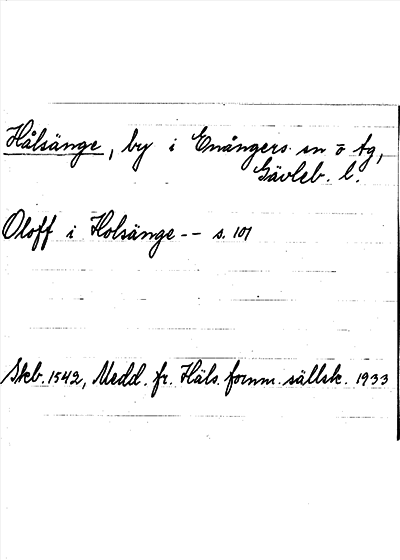 Hålsänge, by i Enångers sn o tg,
Gävleb. l.
Oloff i Holsänge -- s. 101
Skb. 1542, Medd. fr. Häls. fornm. sällsk. 1933